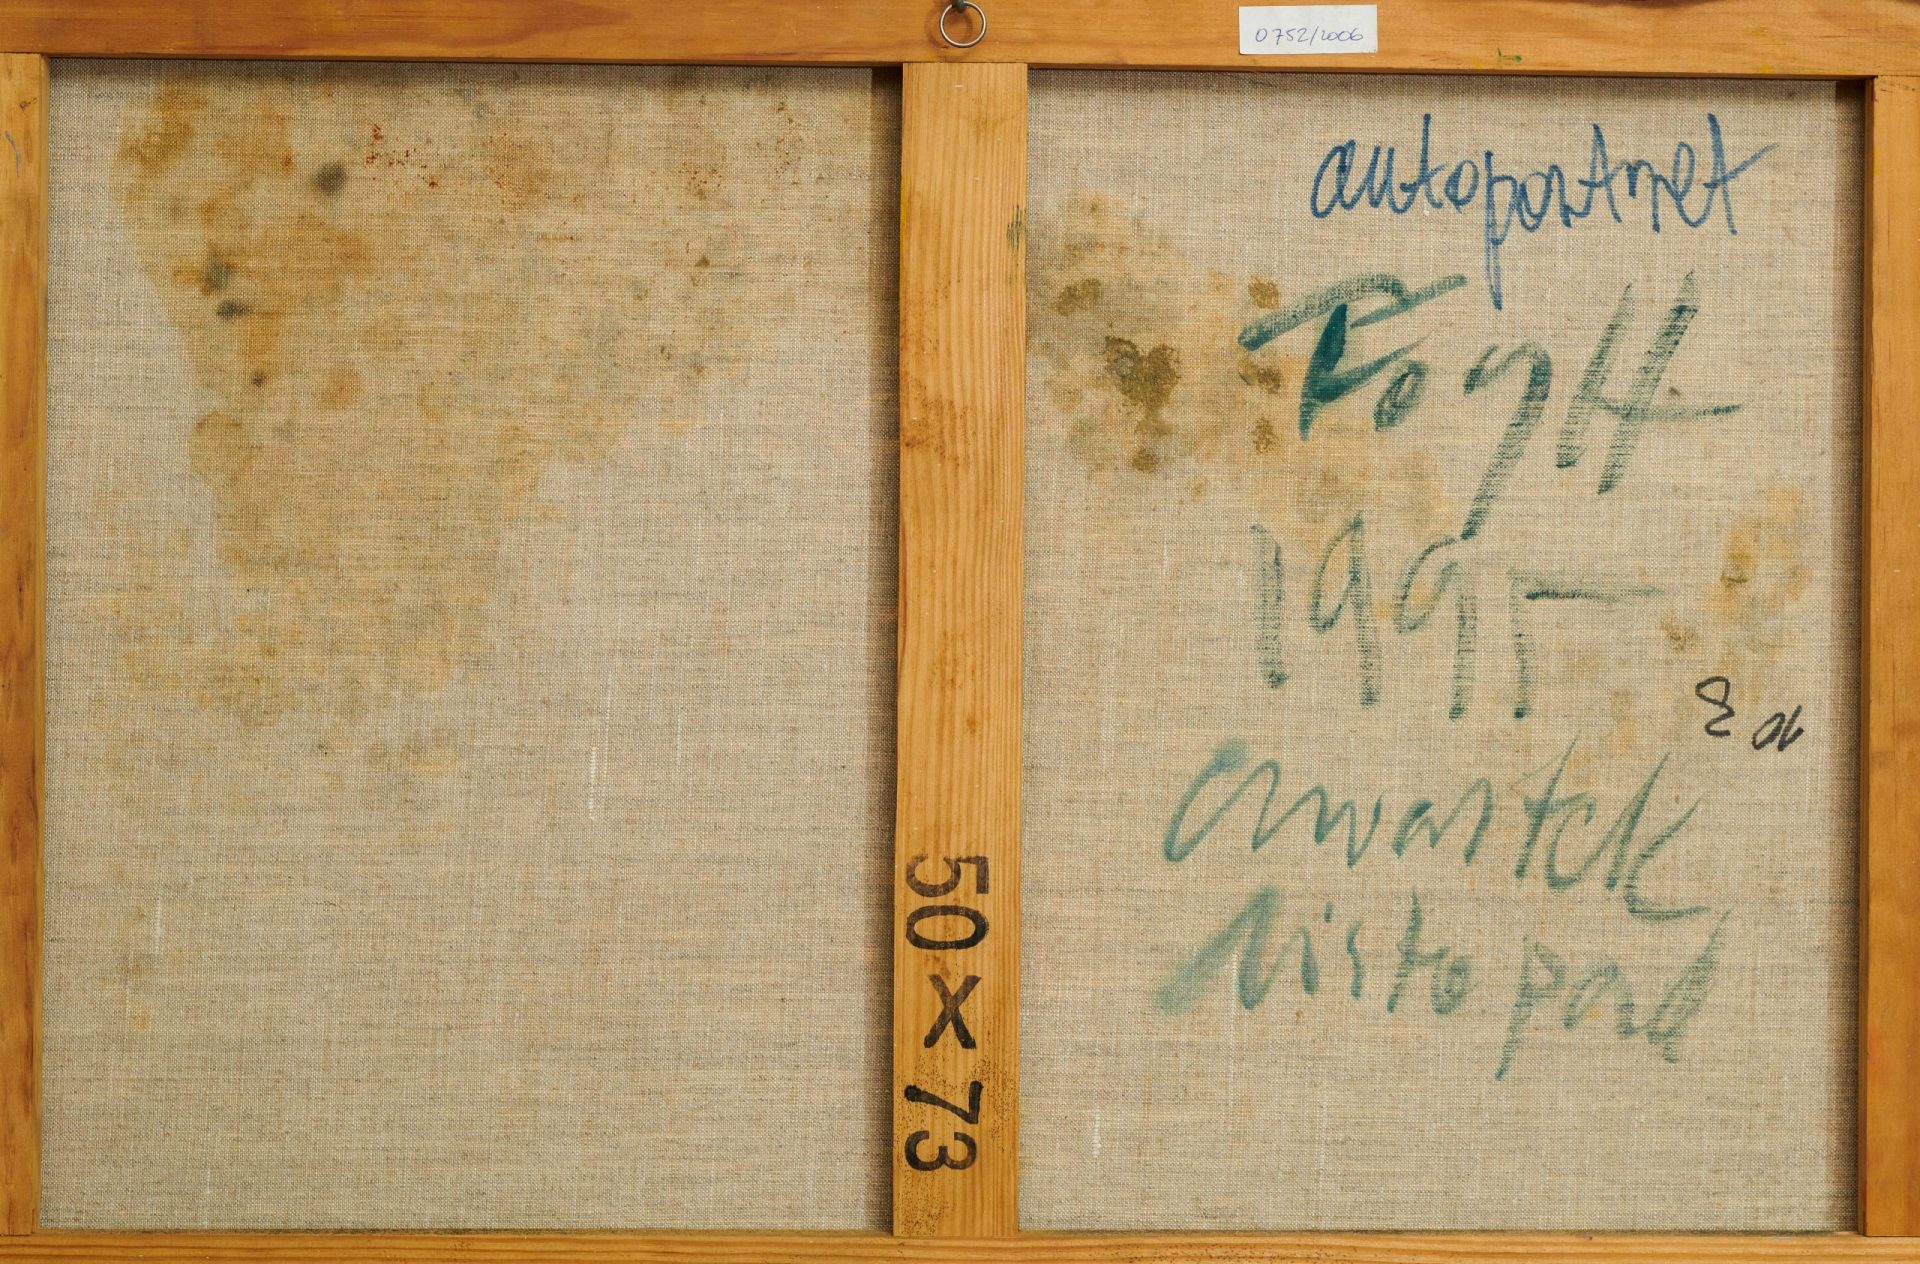 0752/2006
autoportret
Fogtt
1995
czwartek
listopad
50 x 73